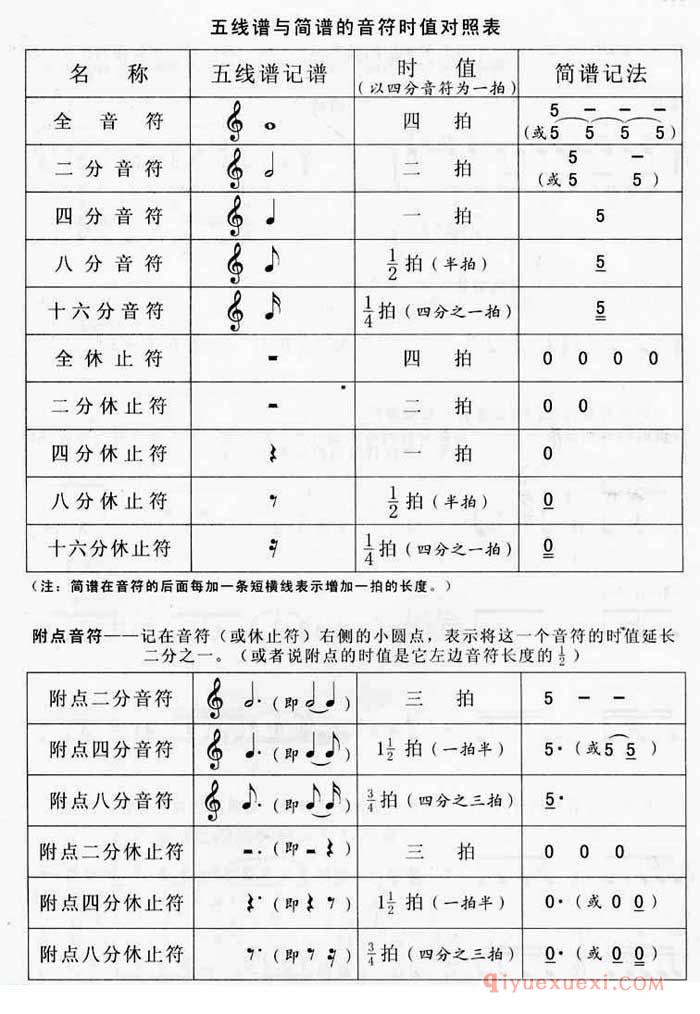 五线谱与简谱的音符时值对照表
名 称 五线谱记谱 时 值 (以四分音符为一拍) 简谱记法
全 音 符 四 拍 5 – – –
(或5 5 5 5)
二 分 音 符 二 拍 5 –
(或5 5)
四 分 音 符 一 拍 5
八 分 音 符 1/2拍(半拍) 5
十六分音符 1/4拍(四分之一拍) 5
全 休 止 符 四 拍 0 0 0 0
二分休止符 二 拍 0 0
四分休止符 一 拍 0
八分休止符 1/2拍(半拍) 0
十六分休止符 1/4拍(四分之一拍) 0
(注:简谱在音符的后面每加一条短横线表示增加一拍的长度。)
附点音符——记在音符(或休止符)右侧的小圆点,表示将这一个音符的时值延长
二分之一。(或者说附点的时值是它左边音符长度的1/2)
附点二分音符 (即 ) 三 拍 5 – –
附点四分音符 (即 ) 1 1/2 拍(一拍半) 5·(或5 5)
附点八分音符 (即 ) 3/4拍(四分之三拍) 5·
附点二分休止符 (即 ) 三 拍 0 0 0
附点四分休止符 (即 ) 1 1/2 拍(一拍半) 0·(或 0 0)
附点八分休止符 (即 ) 3/4拍(四分之三拍) 0·(或 0 0)
qiyuexuexi.com